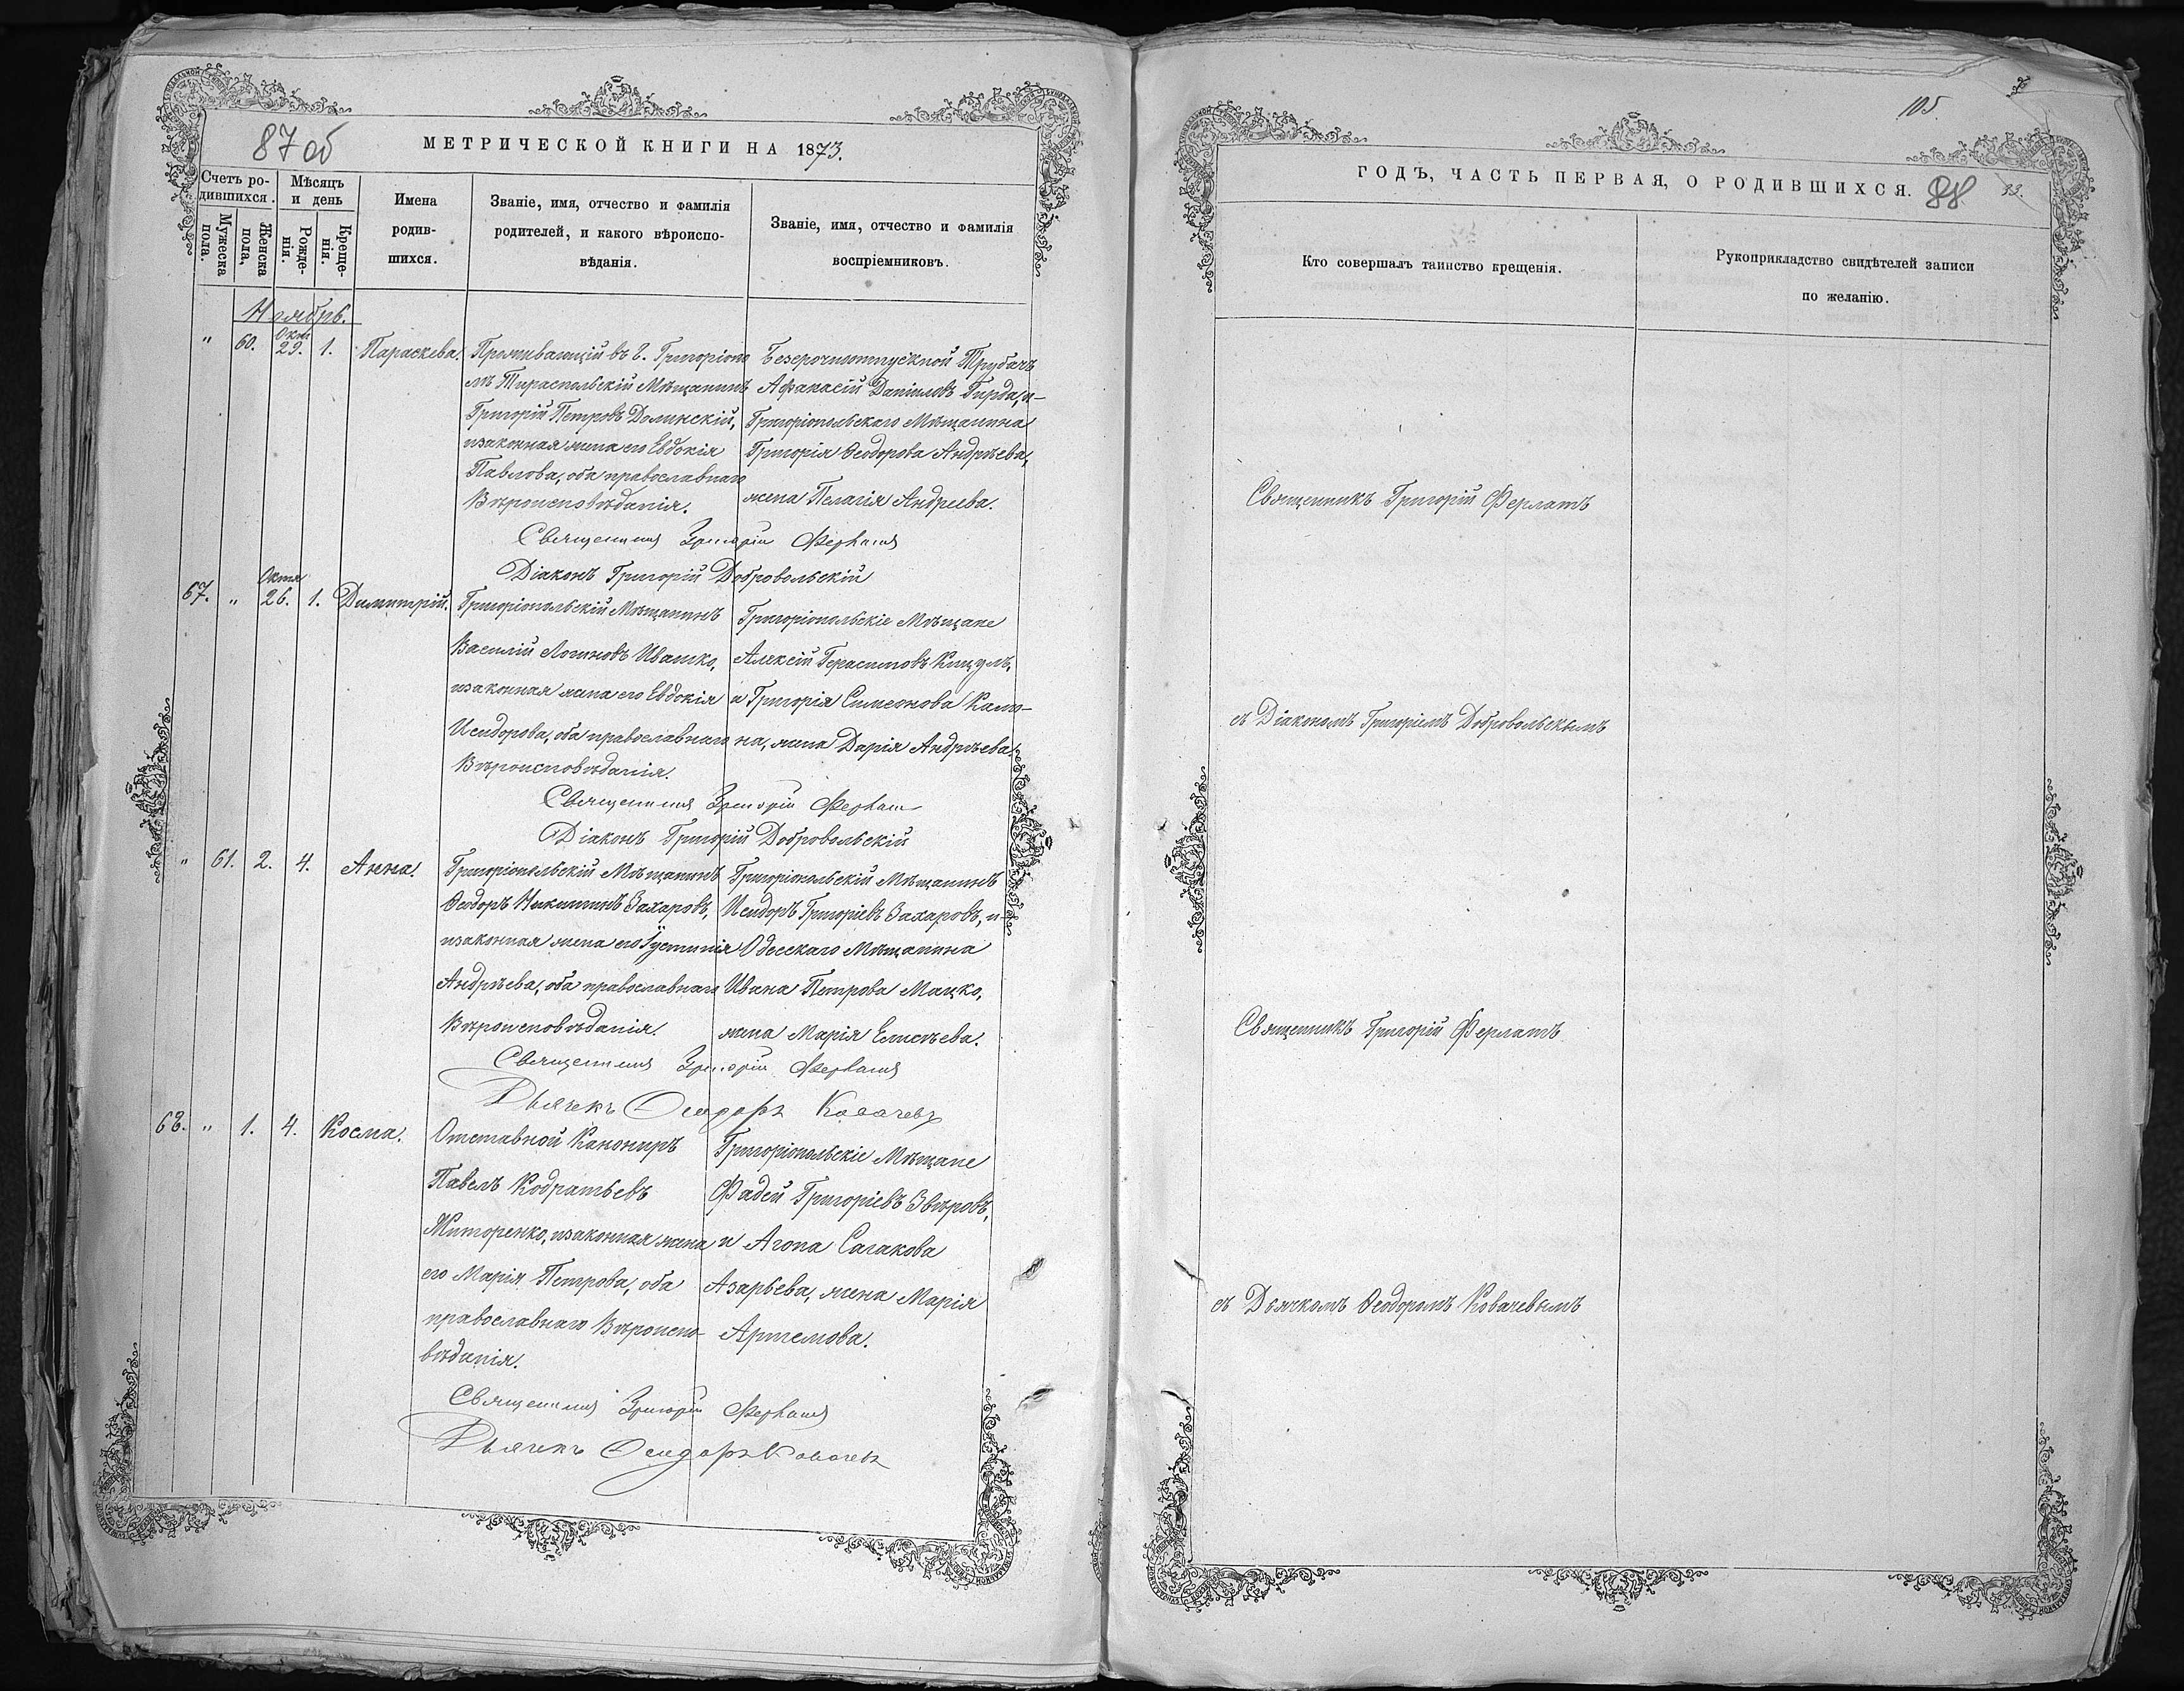 87 об
МЕТРИЧЕСКОЙ КНИГИ НА 1873.
Счетъ ро-
дившихся.
Мѣсяцъ
и день
Мужеска
пола.
Женска
пола,
Рожде-
нія.
Креще-
нія.
Имена
родив-
шихся.
Званіе, имя, отчество и фамилія
родителей, и какого вѣроиспо-
вѣданія.
Званіе, имя, отчество и фамилія
воспріемниковъ.
Ноябрь.
" 60. Окт 29. 1. Параскева.
Проживающій въ г. Григоріопо
лѣ Тираспольскій Мѣщанинъ
Григорій Петровъ Долинскій,
изаконная жена его Евдокія
Павлова, оба православнаго
Вѣроисповѣданія.
Безсрочноотпускной Трубачъ
Афанасій Даніиловъ Гирда, и-
Григоріопольскаго Мѣщанина
Григорія Ѳеодорова Андрѣева,
жена Пелагія Андреева.
Священникъ Григорій Ферлатъ
Діаконъ Григорій Добровольскій
67. " Октя 26. 1. Димитрій.
Григоріопольскій Мѣщанинъ
Василій Логиновъ Ивашко,
изаконная жена его Евдокія
Исидорова, оба православнаго
Вѣроисповѣданія.
Григоріопольскіе Мѣщане
Алексій Герасимовъ Кицулъ,
и Григорія Симеонова Кали-
на, жена Дарія Андрѣева.
Священникъ Григорій Ферлат
Діаконъ Григорій Добровольскій
" 61. 2. 4. Анна.
Григоріопольскій Мѣщанинъ
Ѳеодоръ Никитинъ Захаровъ,
изаконная жена его Іустинія
Андрѣева, оба православнаго
Вѣроисповѣданія.
Григоріопольскій Мѣщанинъ
Исидоръ Григоріевъ Захаровъ, и-
Одесскаго Мѣщанина
Ивана Петрова Мацко,
жена Марія Елисѣева.
Священникъ Григорій Ферлатъ
Дьячекъ Ѳеодоръ Ковачевъ
68. " 1. 4. Косма.
Отставной Канониръ
Павелъ Кодратьевъ
Житоренко, изаконная жена
его Марія Петрова, оба
православнаго Вѣроиспо-
вѣданія.
Григоріопольскіе Мѣщане
Фадей Григоріевъ Звѣровъ,
и Агопа Сагакова
Азарьева, жена Марія
Артемова.
Священникъ Григорій Ферлатъ
Дьячекъ Ѳеодоръ Ковачевъ
105.
ГОДЪ, ЧАСТЬ ПЕРВАЯ, О РОДИВШИХСЯ.
88
33.
Кто совершалъ таинство крещенія.
Рукоприкладство свидѣтелей записи
по желанію.
Священникъ Григорій Ферлатъ
съ Діакономъ Григоріемъ Добровольскимъ
Священникъ Григорій Ферлатъ
съ Дьячкомъ Ѳеодоромъ Ковачевымъ